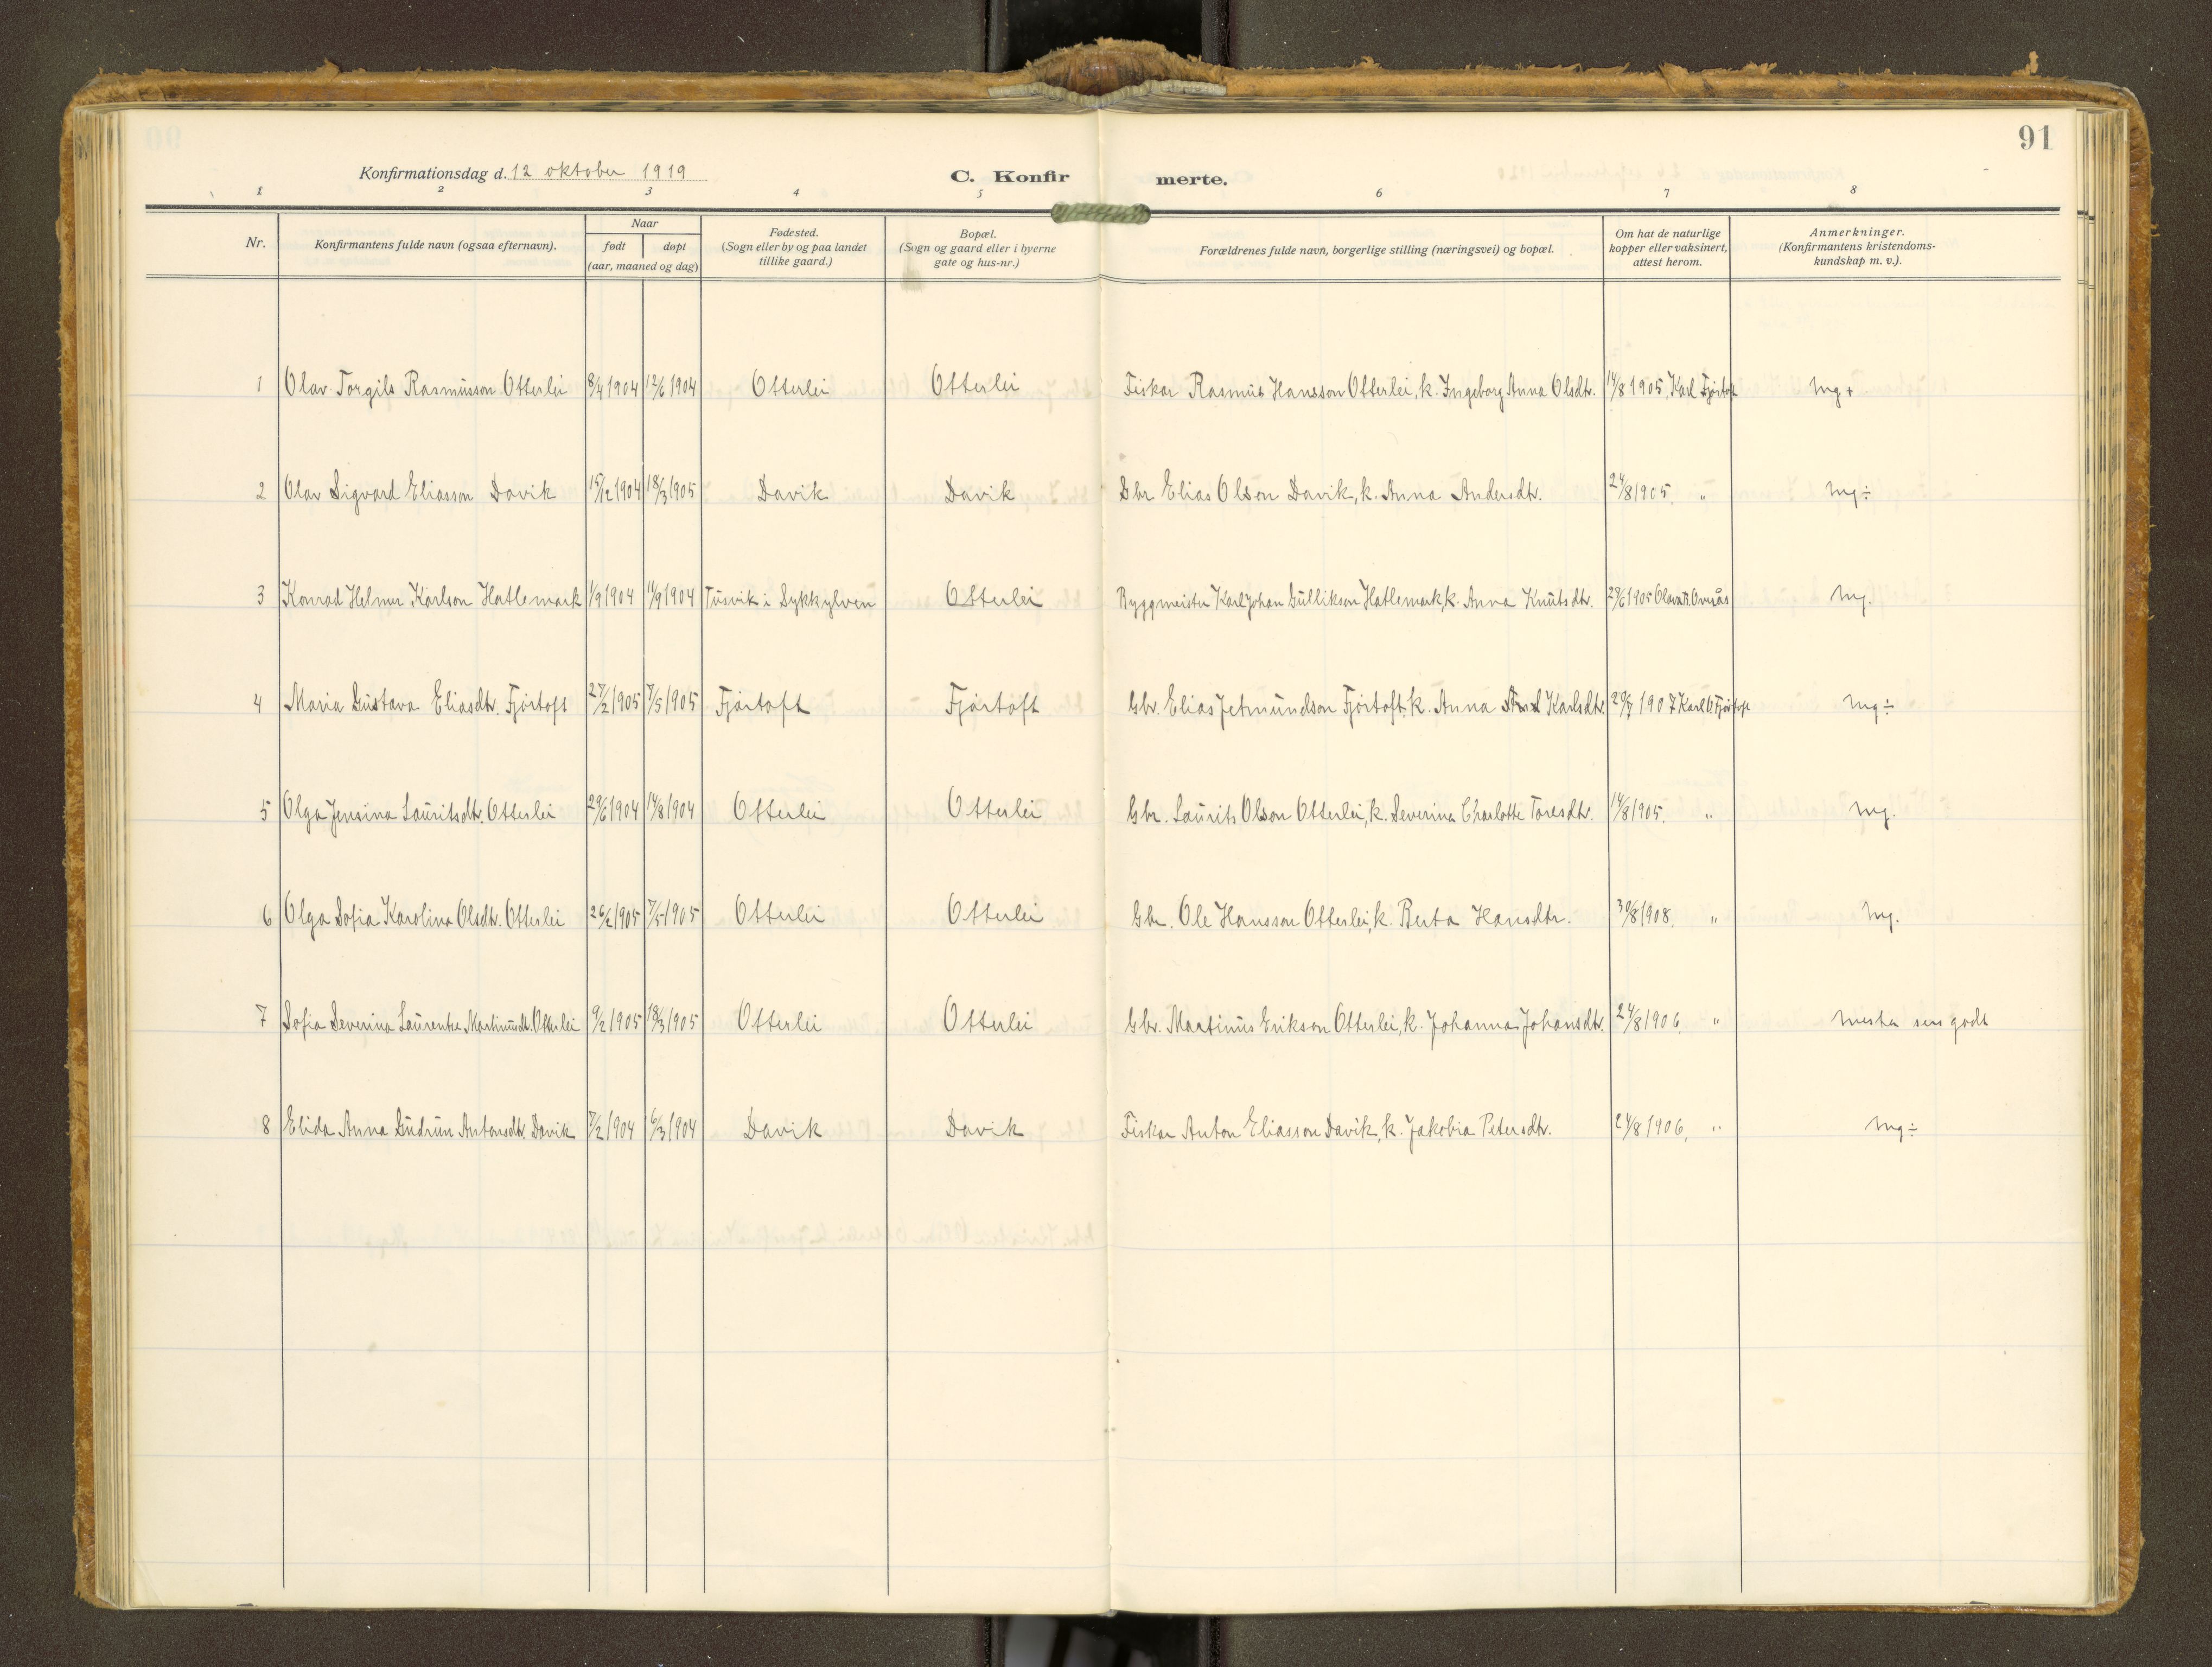 91
Konfirmationsdag d. 12 oktober 1919 C. Konfirmerte.
1 2 3 4 5 6 7 8
Nr. Konfirmantens fulde navn (ogsaa efternavn). Naar født døpt (aar, maaned og dag) Fødested. (Sogn eller by og paa landet tillike gaard.) Bopæl. (Sogn og gaard eller i byerne gate og hus-nr.) Forældrenes fulde navn, borgerlige stilling (næringsvei) og bopæl. Om hat de naturlige kopper eller vaksinert, attest herom. Anmerkninger. (Konfirmantens kristendoms-kundskap m. v.).
1 Olav Torgils Rasmusson Otterlei 8/4 1904 12/6 1904 Otterlei Otterlei Fiskar Rasmus Hansson Otterlei, k. Ingeborg Anna Olsdtr. 14/8 1905, Karl Fjørtoft Mg +
2 Olav Sigvard Eliasson Davik 15/12 1904 18/3 1905 Davik Davik Gbr Elias Olson Davik, k. Anna Andersdtr. 24/8 1905. " Mg ÷
3 Konrad Helmer Karlson Hatlemark 1/9 1904 11/9 1904 Tusvik i Sykkylven Otterlei Byggmeister Karl Johan Gullikson Hatlemark, k. Anna Knutsdtr. 29/6 1905 Overås Mg.
4 Maria Gustava Eliasdtr. Fjørtoft 27/2 1905 7/5 1905 Fjørtoft Fjørtoft Gbr. Elias Jetmundson Fjørtoft, k. Anna Karlsdtr. 1907 Karl O Fjørtoft Mg ÷
5 Olga Jensina Lauritsdtr. Otterlei 29/6 1904 14/8 1904 Otterlei Otterlei Gbr. Laurits Olson Otterlei, k. Severina Charlotte Toresdtr. 14/8 1905. " Mg.
6 Olga Sofia Karolina Olsdtr. Otterlei 26/2 1905 7/5 1905 Otterlei Otterlei Gbr. Ole Hansson Otterlei, k. Berta Hansdtr. 30/8 1908. " Mg.
7 Sofia Severina Laurentse Martinusdt. Otterlei 9/2 1905 18/3 1905 Otterlei Otterlei Gbr. Martinus Erikson Otterlei, k. Johanna Johansdtr. 24/8 1906. " mesta sers godt
8 Elida Anna Gudrun Antonsdtr. Davik 7/2 1904 6/3 1904 Davik Davik Fiskar Anton Eliasson Davik, k. Jakobia Petersdtr. 24/8 1906. " Mg ÷